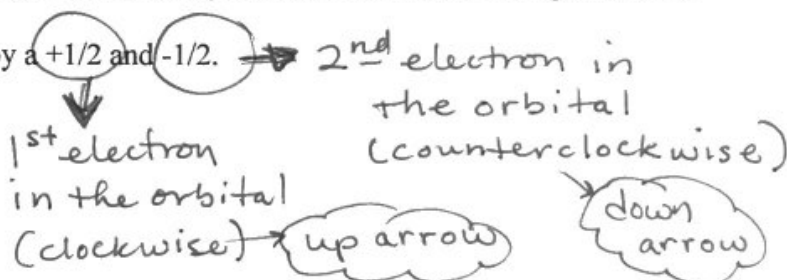 y a +1/2 and -1/2.
2nd electron in
the orbital
(counterclockwise)
down
arrow
1st electron
in the orbital
(clockwise)
up arrow